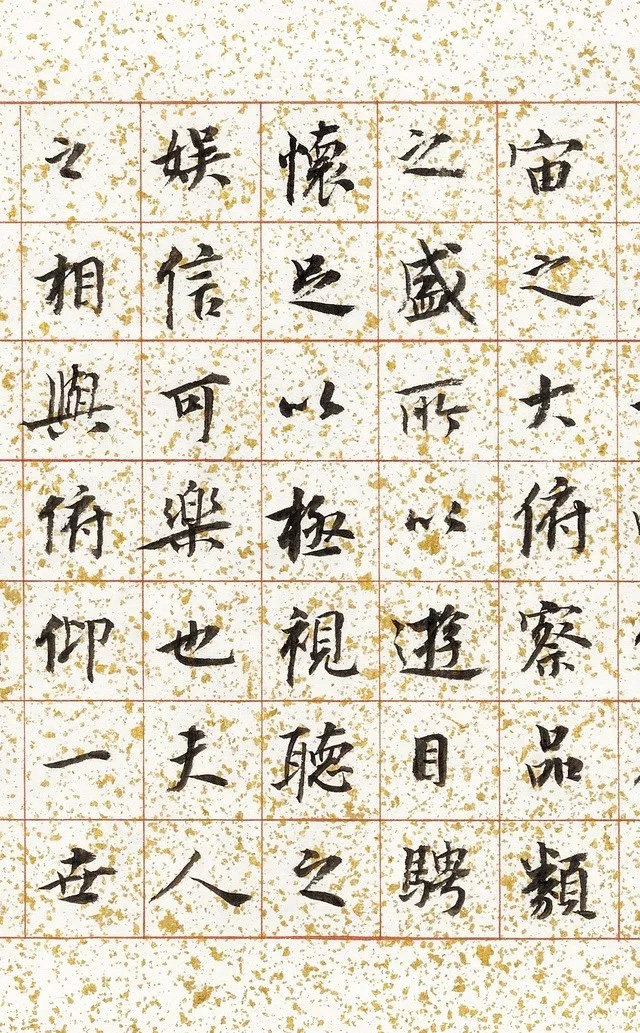 宙之大俯察品類
之盛所以遊目騁
懷足以極視聽之
娱信可樂也夫人
之相與俯仰一世